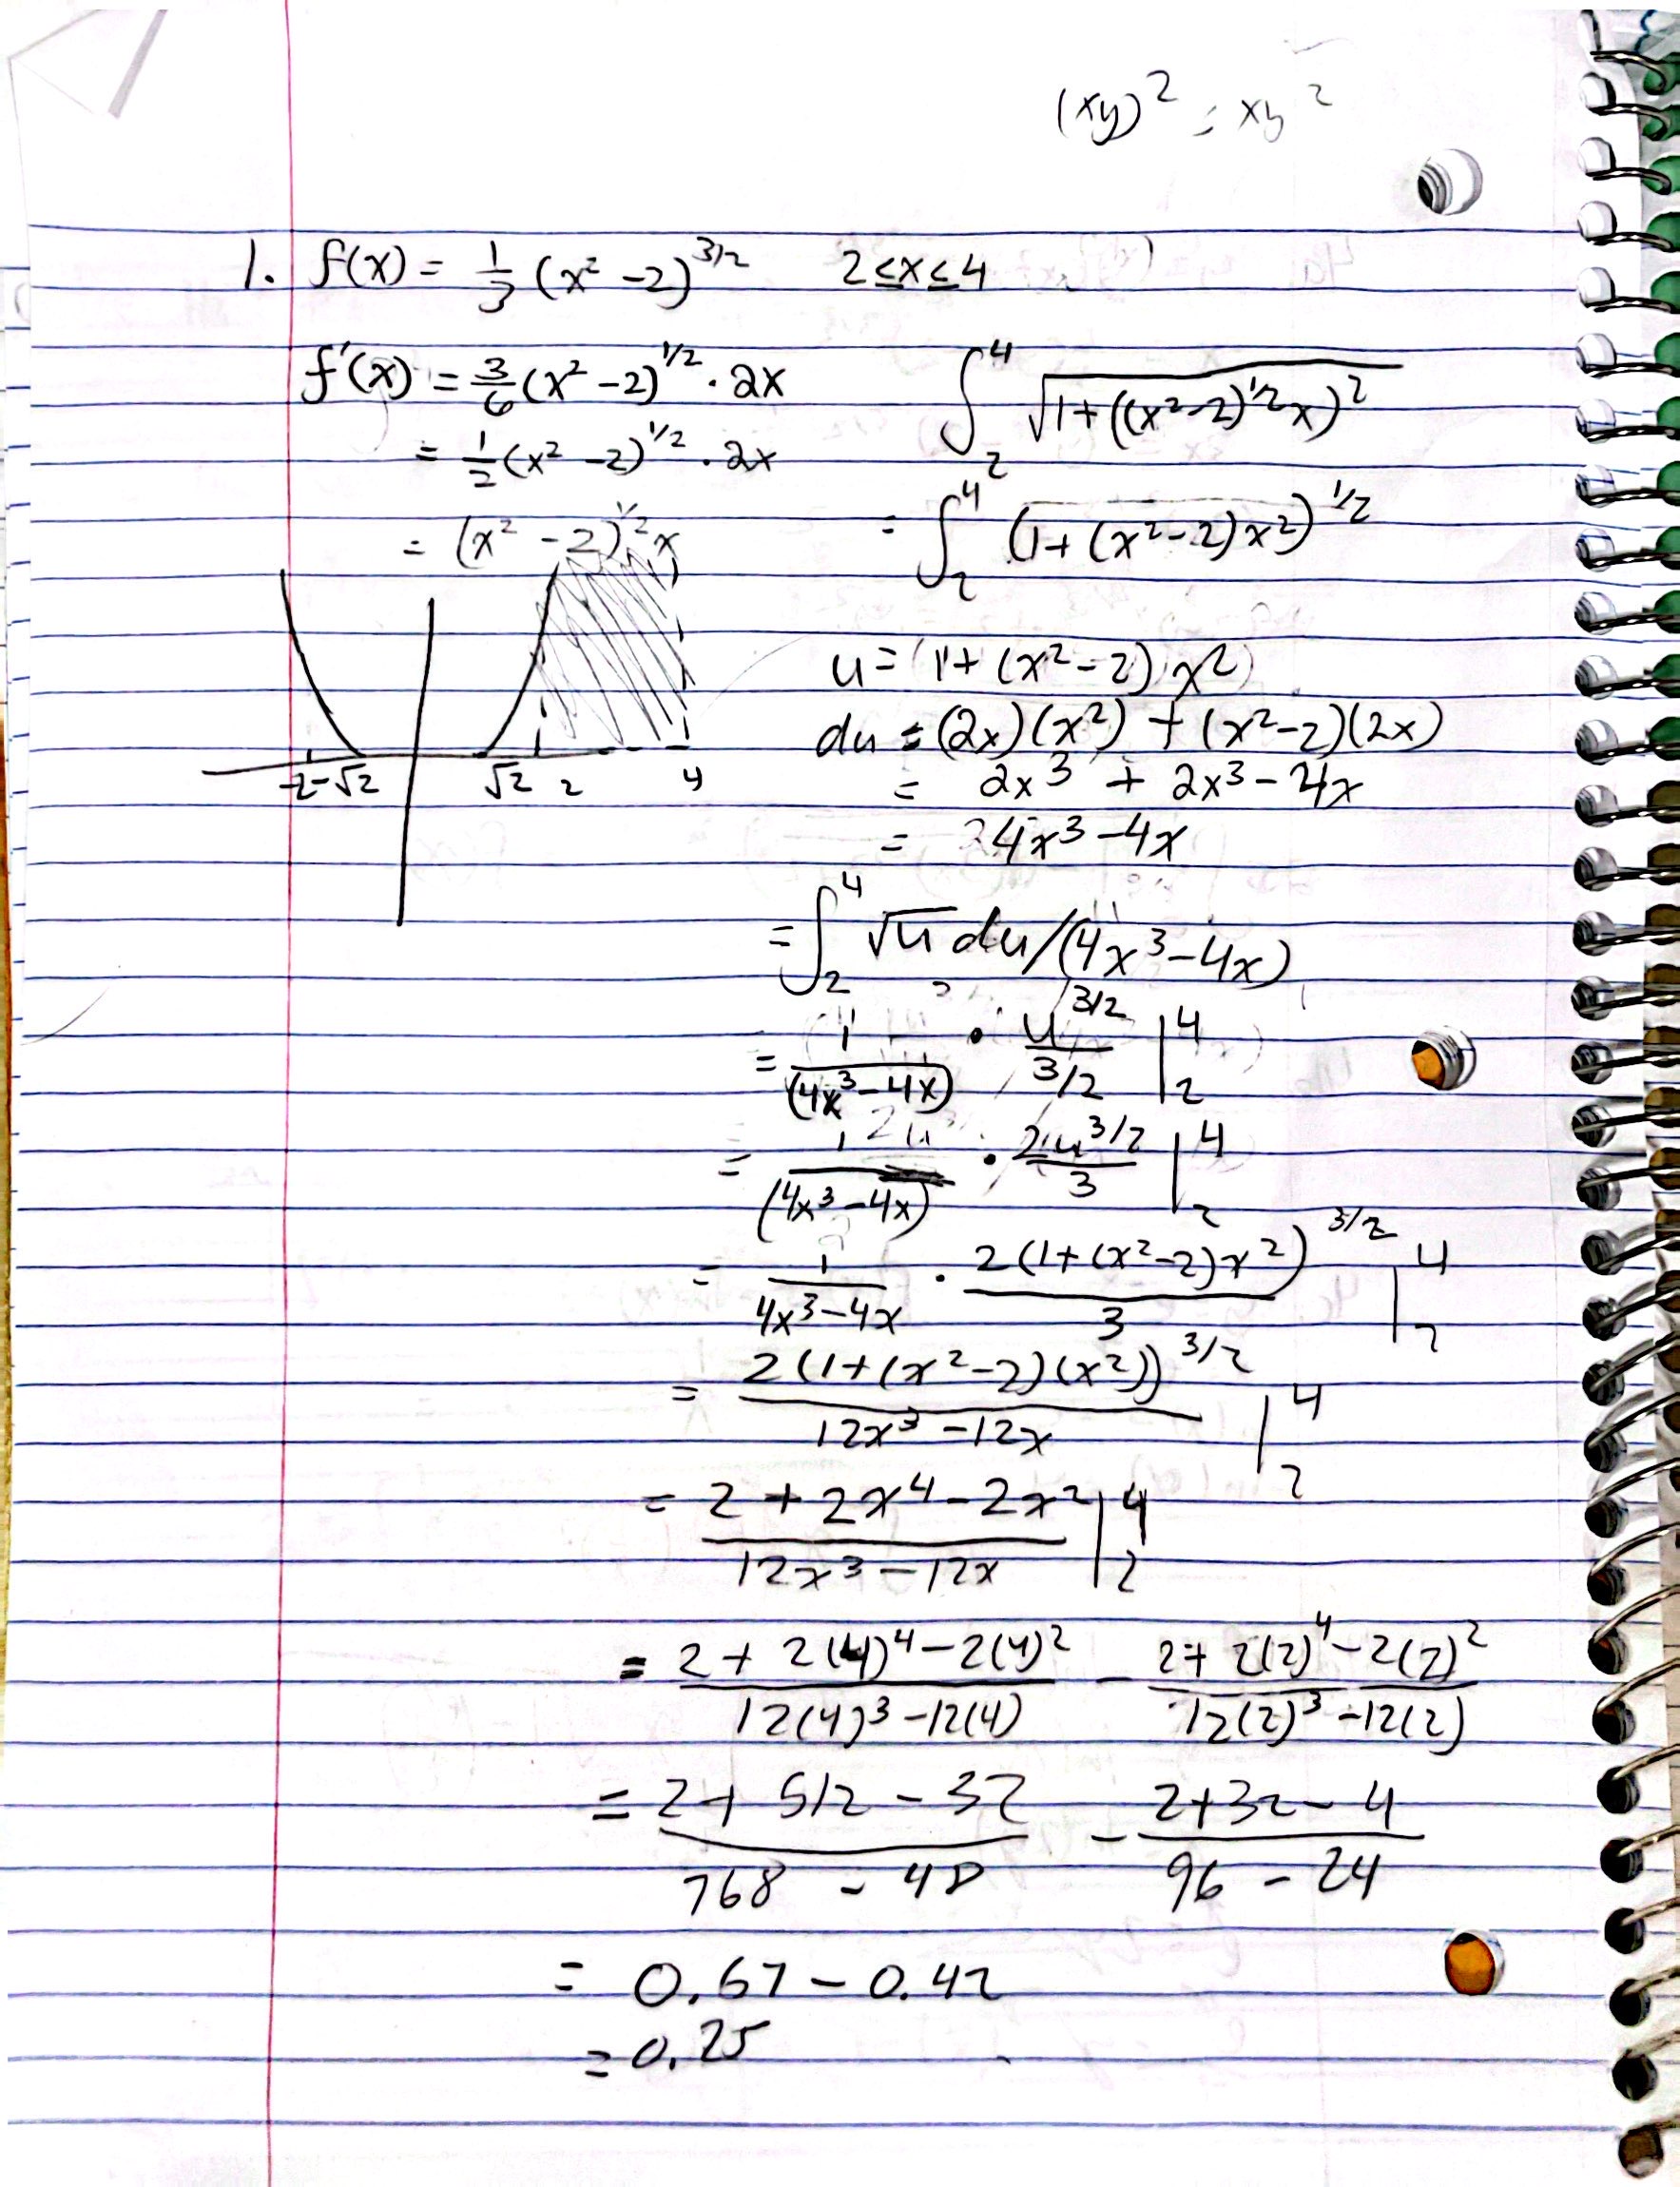 (xy)² = xy²
1. f(x) = 1/3 (x² - 2)^3/2   2 ≤ x ≤ 4
f'(x) = 3/6 (x² - 2)^1/2 · 2x
= 1/2 (x² - 2)^1/2 · 2x
= (x² - 2)^1/2 x
-2 -√2 √2 2 4
∫₂⁴ √(1 + ((x² - 2)^1/2 x)²)
= ∫₂⁴ (1 + (x² - 2) x²)^1/2
u = (1 + (x² - 2) x²)
du = (2x)(x²) + (x² - 2)(2x)
= 2x³ + 2x³ - 4x
= 4x³ - 4x
= ∫₂⁴ √u du/(4x³ - 4x)
= 1/(4x³ - 4x) · u^3/2 / 3/2 |₂⁴
= 1/(4x³ - 4x) · 2u^3/2 / 3 |₂⁴
= 1/4x³ - 4x · 2(1 + (x² - 2)x²)^3/2 / 3 |₂⁴
= 2(1 + (x² - 2)(x²))^3/2 / 12x³ - 12x |₂⁴
= 2 + 2x⁴ - 2x² / 12x³ - 12x |₂⁴
= 2 + 2(4)⁴ - 2(4)² / 12(4)³ - 12(4) - 2 + 2(2)⁴ - 2(2)² / 12(2)³ - 12(2)
= 2 + 512 - 32 / 768 - 48 - 2 + 32 - 4 / 96 - 24
= 0.67 - 0.42
= 0.25